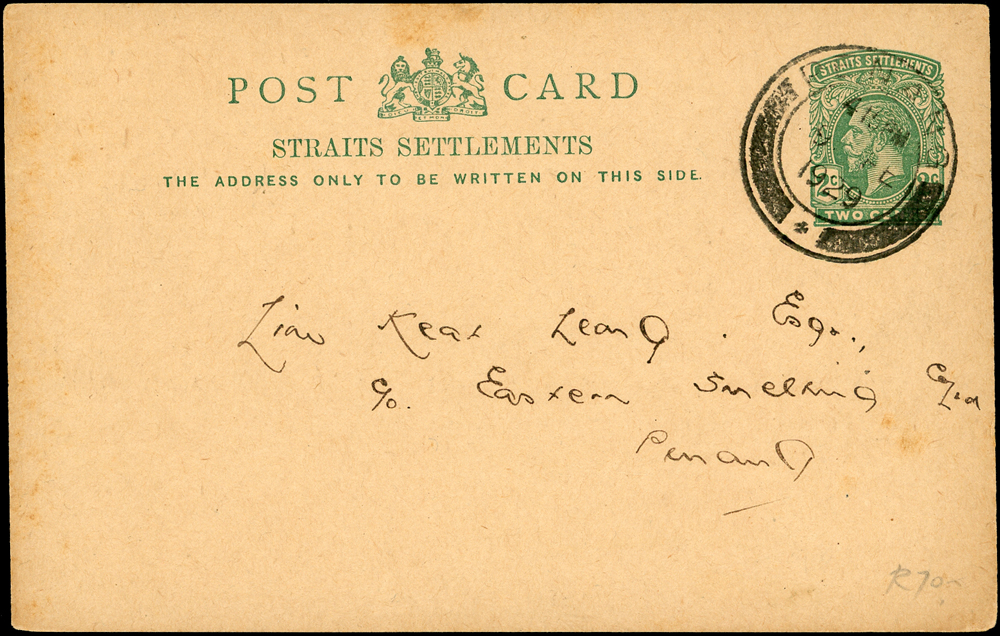 POST CARD
STRAITS SETTLEMENTS
THE ADDRESS ONLY TO BE WRITTEN ON THIS SIDE.
STRAITS SETTLEMENTS
2c 2c
TWO
1929
Lim Keat Leong. Esqr.,
c/o. Eastern Smelting Co Ltd
Penang
R70-